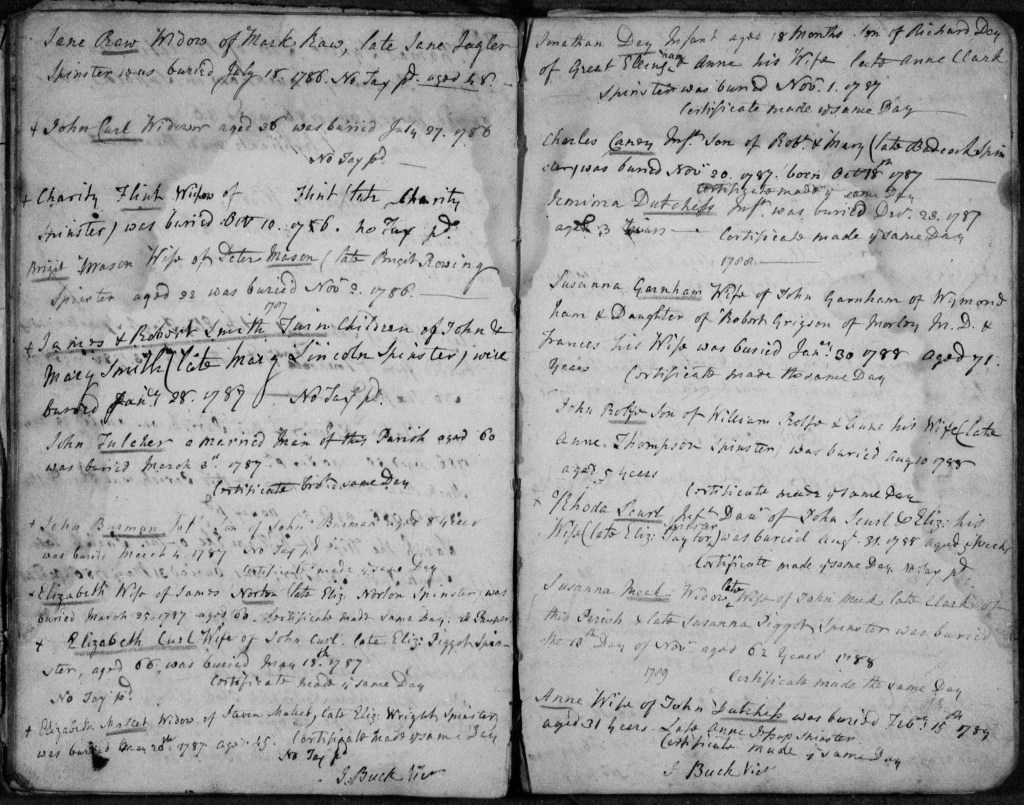 Jane Raw Widow of Mark Raw, late Jane
Spinster was buried July 18. 1786. No Tax pd. aged 48.
+ John Curl Widower aged was buried July 27. 1786
No Tax pd. —
+ Charity Flint Widow of Flint (late Charity
Spinster) was buried Octr 10. 1786. no Tax pd.
Brigit Mason Wife of Peter Mason (late Brigit Rowing
Spinster aged 22 was buried Novr 2. 1786. —
1787
+ James & Robert Smith Twin Children of John &
Mary Smith (late Mary Lincoln Spinster) were
buried Jany 28. 1787 — No Tax pd.
John Fulcher a married Man of this Parish aged 60
was buried March 3d. 1787.
Certificate same Day
+ John Burman Inft. Son of John Burman aged 8
was buried March 4. 1787 No Tax pd
Certificate made ye same Day
+ Elizabeth Wife of James Norton (late Eliz: Norton Spinster) was
buried March 25. 1787 aged 60. Certificate made same Day. a Pauper.
+ Elizabeth Curl Wife of John Curl. late Eliz: Piggot Spin-
ster, aged 66, was buried May 18th. 1787
Certificate made ye same Day
No Tax pd
+ Elizabeth Mallet Widow of Mallet, late Eliz: Wright Spinster
was buried May 20th. 1787 aged Certificate made ye same Day
No Tax pd.
J. Buck Vicr
Jonathan Dey Infant aged 18 Months Son of Richard Dey
of Great & Anne his Wife late Anne Clark
Spinster was buried Novr. 1. 1787
Certificate made ye same Day —
Charles Caney Inft. Son of Robt. & Mary (late Badcock Spin
ster) was buried Novr 20. 1787. born Octr 18th 1787 —
Certificate made ye same Day
Jemima Dutchess Inft. was buried Decr. 23. 1787
aged 3 — Certificate made ye same Day
1788 —
Susanna Garnham Wife of John Garnham of Wymond
ham & Daughter of Robert Grigson of Morley M. D. &
Frances his Wife was buried Jany. 30 1788 aged 71.
Years Certificate made the same Day
John Rolfe Son of William Rolfe & Anne his Wife (late
Anne Thompson Spinster) was buried Aug 10 1788
aged 5 years
Certificate made ye same Day
+ Rhoda Scurl Inft. Daur. of John Scurl & Eliz: his
Wife (late Eliz: Taylor) was buried Augt. 31. 1788 aged weeks
Certificate made ye same Day no Tax pd
Susanna Meek Widow late Wife of John Meek late Clark of
this Parish & late Susanna Piggot Spinster was buried
the 18th Day of Novr. aged 62 Years 1788
1789 Certificate made the same Day
Anne Wife of John Dutchess was buried Feby. 15th 1789
aged 31 years. Late Anne Spinster
Certificate made ye same Day
J Buck Vicr